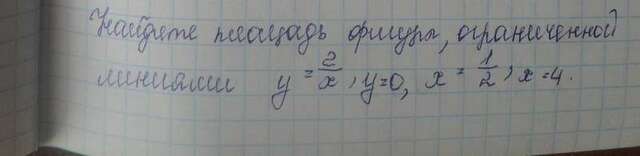 Найдите площадь фигуры, ограниченной
линиями y = 2/x, y=0, x = 1/2, x=4.